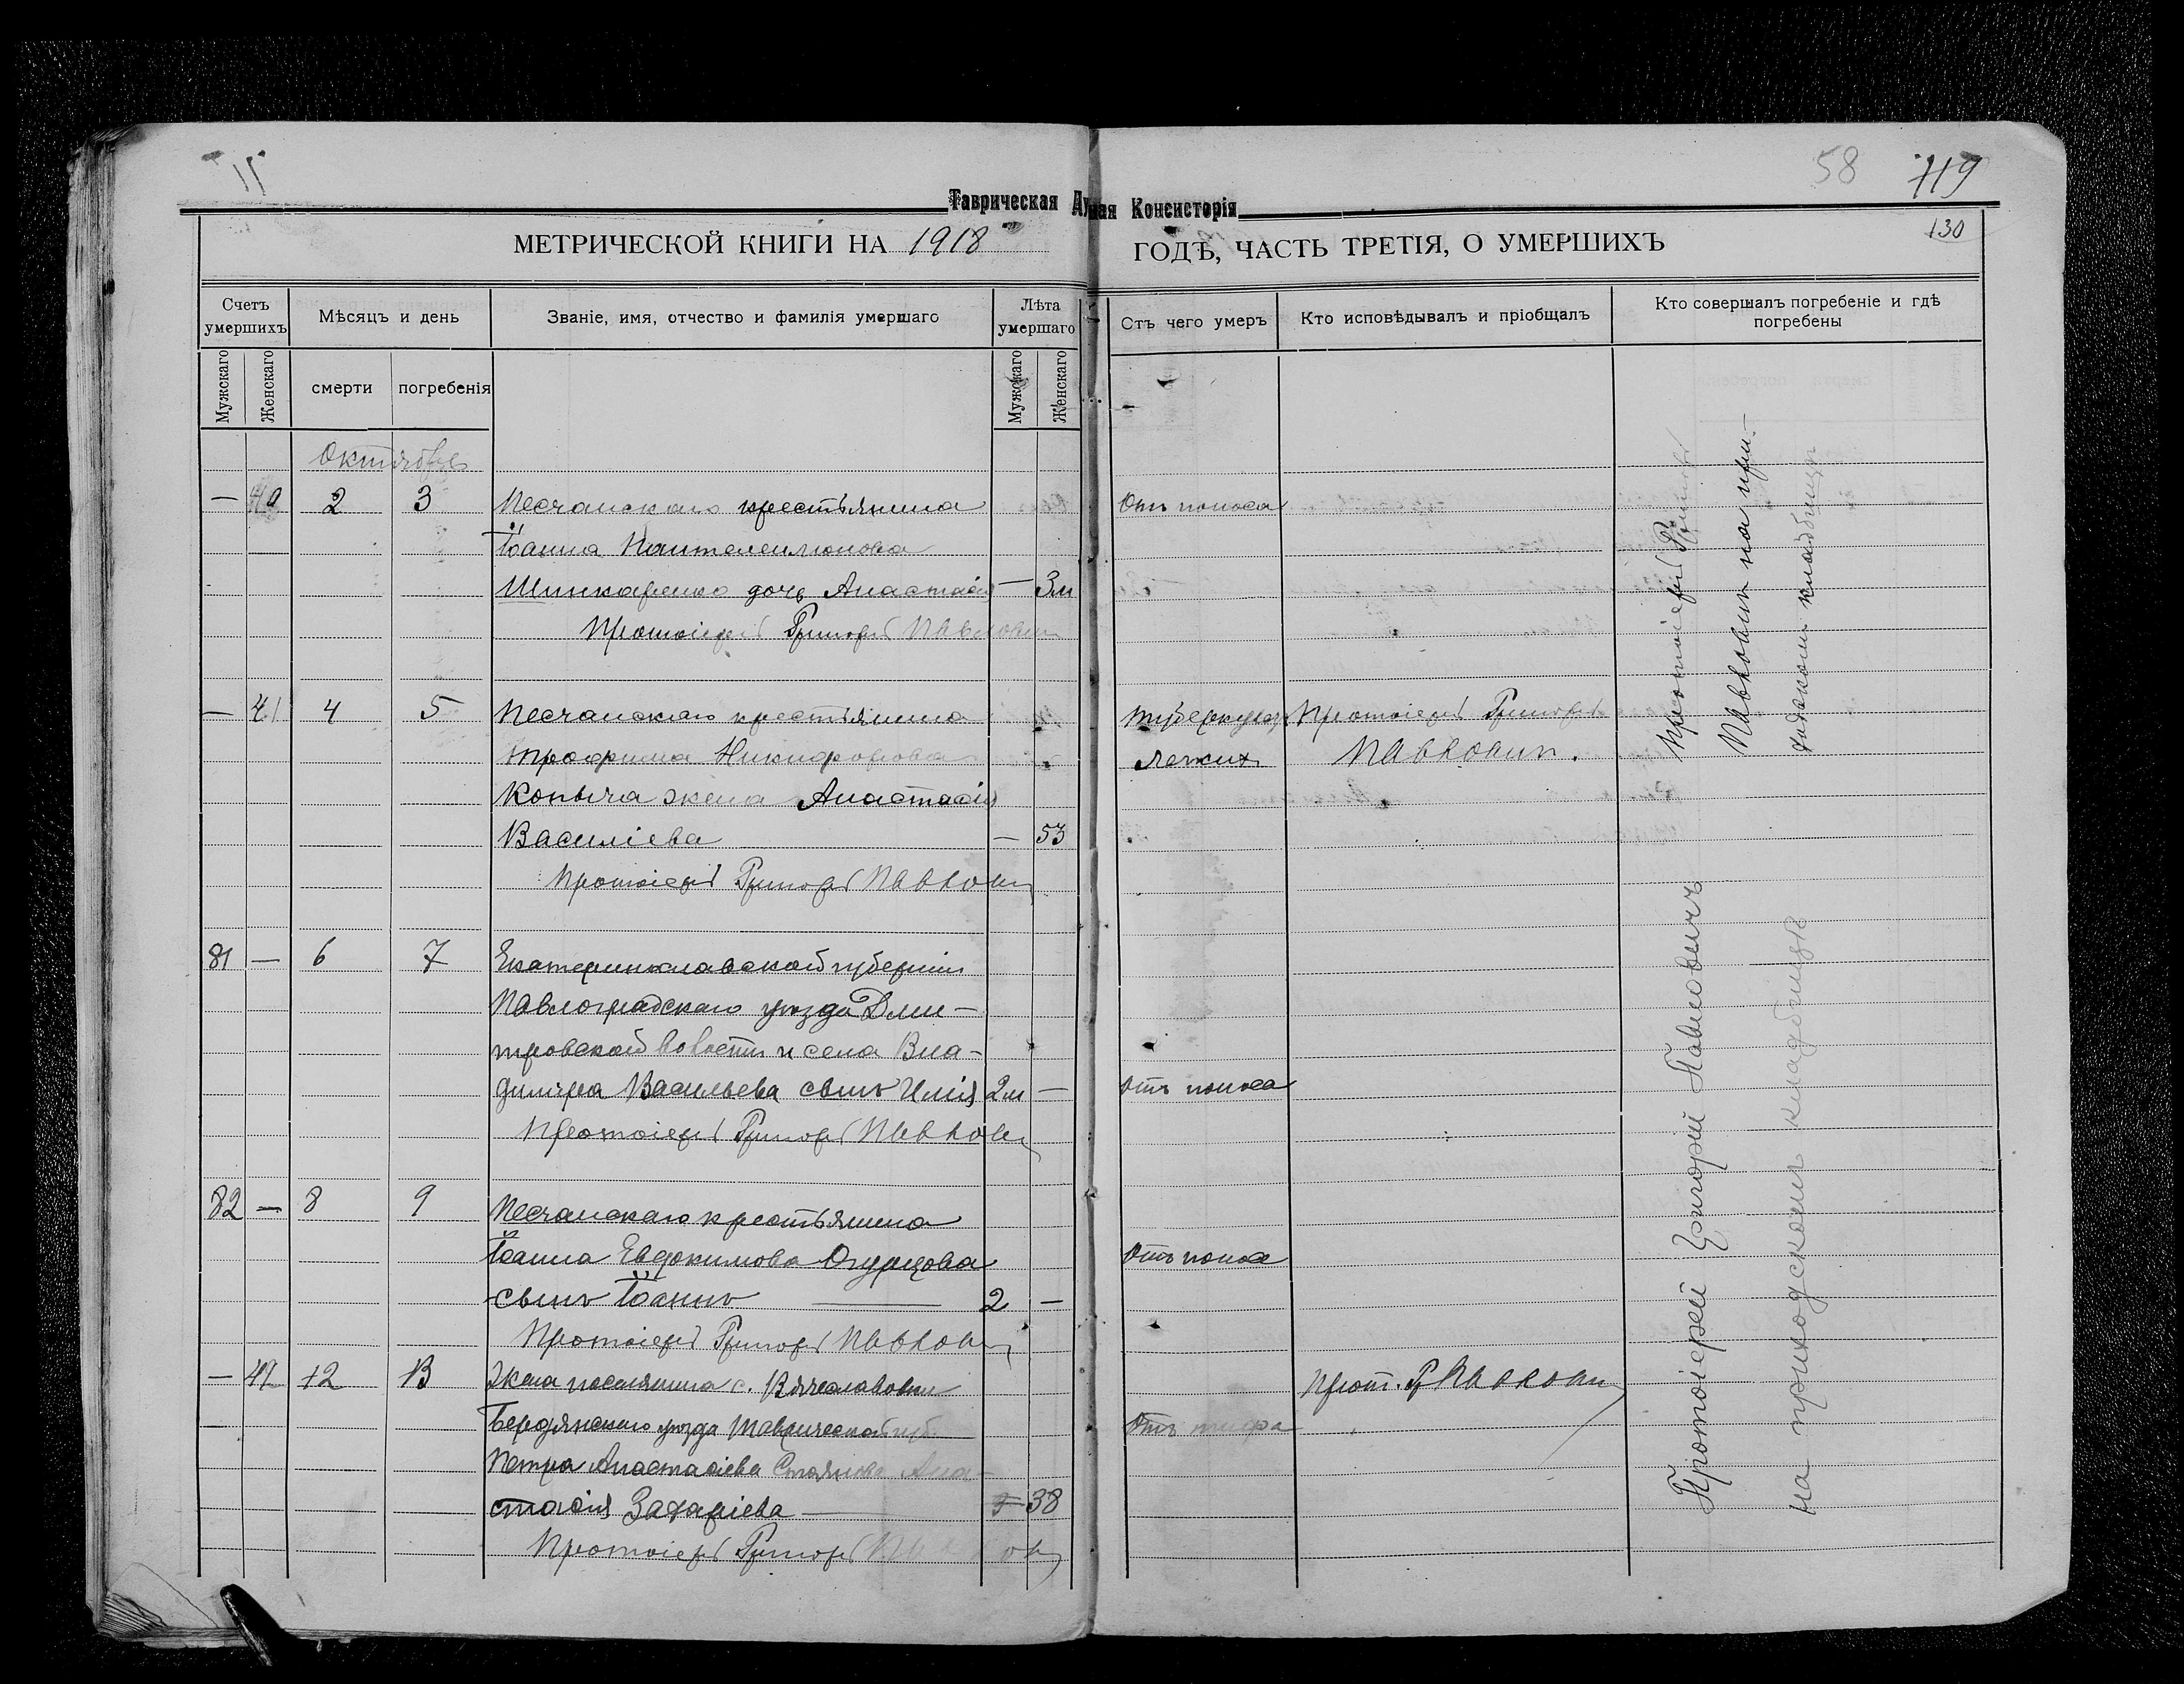 58 119
Таврическая Духовная Консисторія
130
МЕТРИЧЕСКОЙ КНИГИ НА 1918 ГОДЪ, ЧАСТЬ ТРЕТІЯ, О УМЕРШИХЪ
Счетъ умершихъ
Мѣсяцъ и день
Званіе, имя, отчество и фамилія умершаго
Лѣта умершаго
Отъ чего умеръ
Кто исповѣдывалъ и пріобщалъ
Кто совершалъ погребеніе и гдѣ погребены
Мужскаго
Женскаго
смерти
погребенія
Мужскаго
Женскаго
Октября
— 40 2 3 Песчанскаго крестьянина Отъ поноса
Іоанна Пантелеимонова
Шинкаренко дочь Анастасія — 3 м
Протоіерей Григорій Павлович
— 41 4 5 Песчанскаго крестьянина туберкулез Протоіерей Григорій
Трофима Никифорова легких Павлович.
Копыча жена Анастасія
Василіева — 53
Протоіерей Григорій Павлович
Протоіерей Григорій
Павлович на при-
ходском кладбищѣ
81 — 6 7 Екатеринославской губерніи
Павлоградскаго уѣзда Дми-
тровской волости и села Вла-
димира Васильева сынъ Илія 2 м — Отъ поноса
Протоіерей Григорій Павлович
82 — 8 9 Песчанскаго крестьянина
Іоанна Евдокимова Огурцова Отъ поноса
сынъ Іоаннъ 2 —
Протоіерей Григорій Павлович
— 42 12 13 Жена поселянина с. Вячеславовки Прот. Гр Павлович
Бердянскаго уѣзда Таврической губ. Отъ тифа
Петра Анастасіева Стоянова Ана-
стасія Захаріева — 38
Протоіерей Григорій Павлович
Протоіерей Григорій Павловичъ
на приходскомъ кладбищѣ